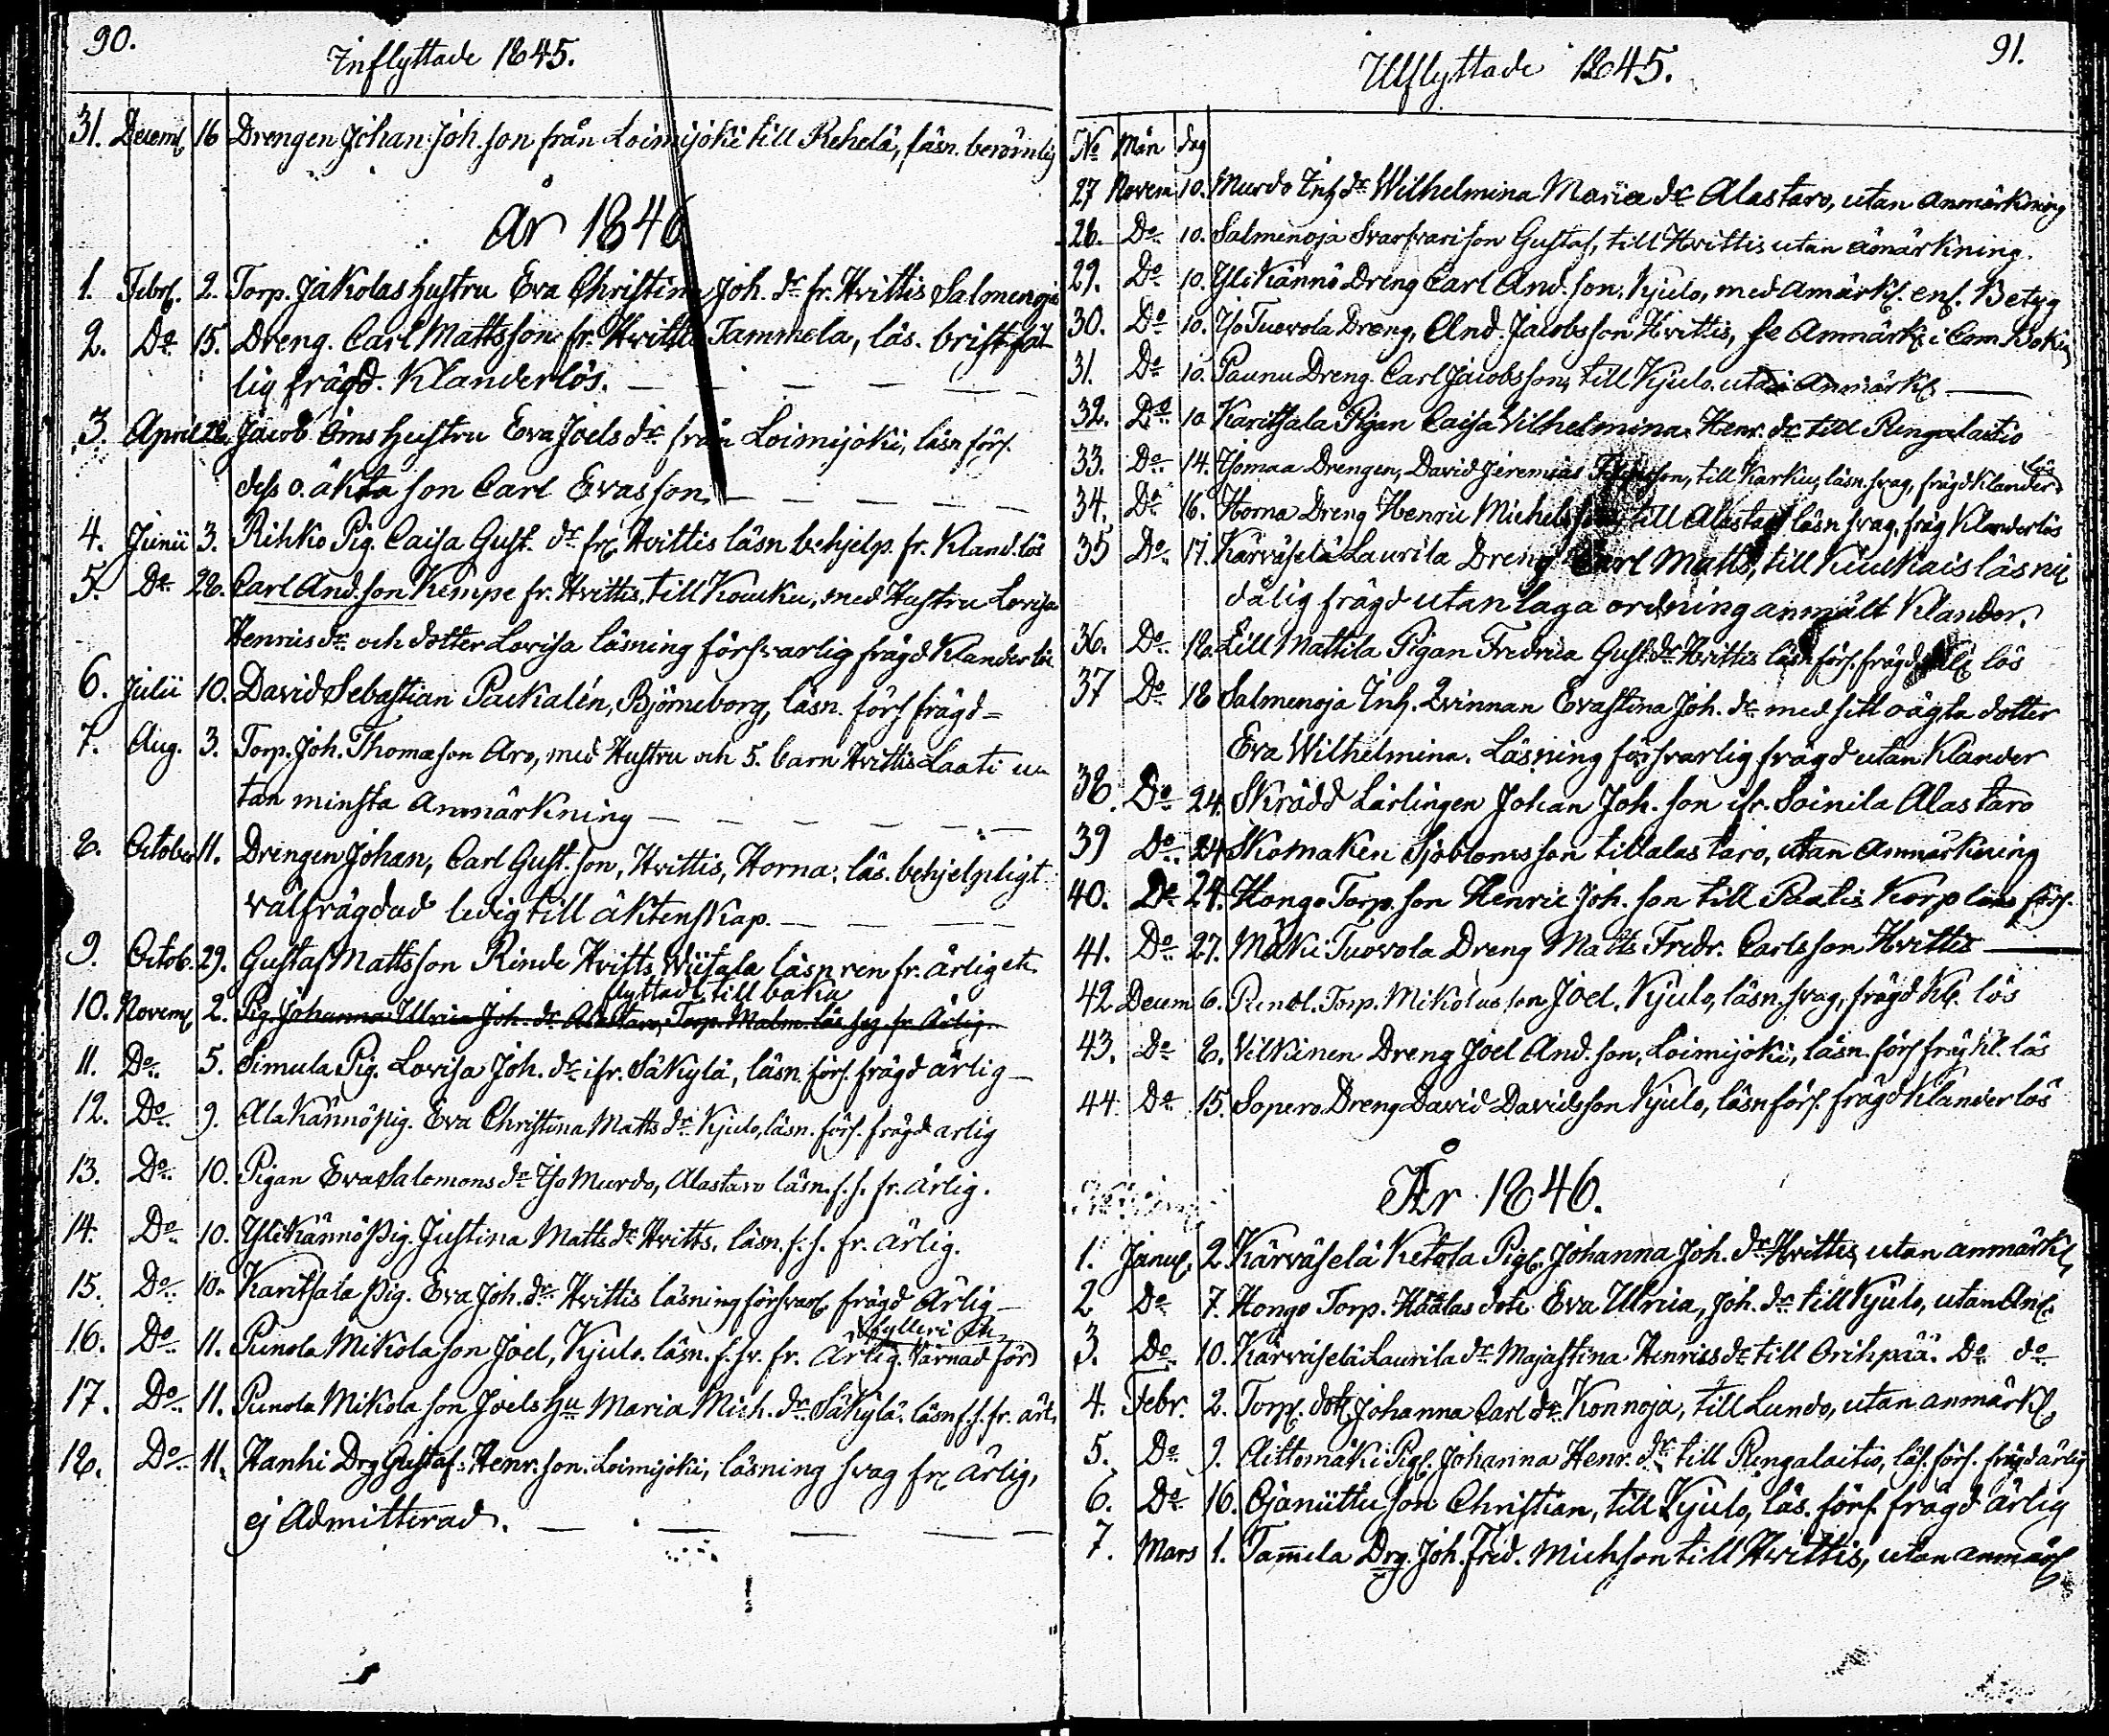 90.
Inflyttade 1845.
31. Decemb 16 Drengen Johan Joh. son från Loimijoki till Rehelä, läsn. berömlig
År 1846
1. Febr. 2. Torp. Jakolas hustru Eva Christina Joh. dr fr. Hvittis Salmenoja
2. Do 15. Dreng. Carl Mattsson fr. Hvittis Tammela, läs. bristfäl
lig frägd. Klanderlös. — — — — —
3. April 26. Jacob Öms hustru Eva Joels dr från Loimijoki, läsn förs.
dess o. äkta son Carl Evasson. — — — —
4. Junii 3. Rihko Pig. Caisa Gust. dr fr. Hvittis läsn behjelp. fr. Kland. lös
5. Do 28. Carl And. son Kempe fr. Hvittis, till Kouku, med Hustru Lovisa
Henrics dr och dotter Lovisa läsning försvarlig frägd Klanderlös
6. Julii 10. David Sebastian Packalén, Björneborg, läsn. förs frägd=
7. Aug. 3. Torp. Joh. Thomasson Aro, med Hustru och 5. barn Hvittis Laati u=
tan minsta Anmärkning — — — — — —
8. October 11. Drengen Johan, Carl Gust. son, Hvittis, Horna, läs. behjelpligt
välfrägdad ledig till äktenskap. — — — —
9. Octob. 29. Gustaf Mattsson Rinde Hvitts Wiitala läsn ren fr. ärlig etc.
flyttade till baka
10. Novemb 2. Pig. Johanna Ulrica Joh. dr Alastaro, Torp. Malm. läs sig. fr. Ärlig.
11. Do 5. Simula Pig. Lovisa Joh. dr ifr. Säkylä, läsn. förs. frägd ärlig —
12. Do 9. Alakännö pig. Eva Christina Matts dr Kjulo, läsn. förs. frägd ärlig
13. Do 10. Pigan Eva Salomons dr Iso Murdo, Alastaro läsn. f. s. fr. ärlig.
14. Do 10. Ylikännö Pig. Justina Matts dr Hvitts. läsn. f. s. fr. ärlig.
15. Do 10. Karitsala Pig. Eva Joh. dr Hvittis läsning försvarl frägd Ärlig —
fylleri
16. Do 11. Punola Mikola son Joel, Kjulo. läsn. f. sv. fr. Ärlig. Varnad för
17. Do 11. Punola Mikola son Joels Hu Maria Mich. dr Säkylä. läsn f. s. fr. ärl.
18. Do 11. Hanhi Drg Gustaf Henr. son. Loimijoki, läsning svag fr. ärlig,
ej Admitterad. — — — — —
91.
Utflyttade 1845.
No Mån dag
27 Novem 10. Murdo Inh dr Wilhelmina Maria dr Alastaro, utan anmärkning
28. Do 10. Salmenoja Svarfvari son Gustaf, till Hvittis utan anmärkning.
29. Do 10. Ylikännö Dreng Carl And. son. Kjulo, med anmärk. enl. Betyg
30. Do 10. Iso Tuovola Dreng, And. Jacobsson Hvittis, se Anmärk. i Com. Boken
31. Do 10. Paunu Dreng Carl Jacobsson, till Kjulo. utan Anmärk —
32. Do 10 Karitsala Pigan Caisa Vilhelmina Henr. dr till Pungalaitio
33. Do 14. Isomaa Drengen, David Jeremias son, till Karku, läsn. svag, frägd Klander lös
34. Do 16. Horna Dreng Henric Michelsson, till Alastaro läsn svag, fräg Klanderlös
35 Do 17. Kärväselä Laurila Dreng Carl Matts, till Kiukais läsn
dålig frägd utan laga ordning anmält Klander.
36. Do 18. Lill Mattila Pigan Fredrica Gust. dr Hvittis läsn förs. frägd lös
37 Do 18 Salmenoja Inh. Qvinnan Evastina Joh. dr med sitt oägta dotter
Eva Wilhelmina. Läsning försvarlig frägd utan Klander
38. Do 24. Skrädd Lärlingen Johan Joh. son ifr. Soinila Alastaro
39 Do 24. Skomaken Sjöblomsson till alastaro, utan Anmärkning
40. Do 24. Hongo Torp. son Henric Joh. son till Paatis Korp läs förs.
41. Do 27. Mäki Tuovola Dreng Matts Fredr. Carlsson Hvittis —
42 Decem 6. Punol. Torp. Mikolas son Joel. Kjulo, läsn. svag, frägd Kl. lös
43. Do 8. Vilkinen Dreng Joel And. son, Loimijoki, läsn. förs fräg kl. lös
44 Do 15. Sopero Dreng David Davidsson Kjulo, läsn förs. frägd Klanderlös
År 1846.
1. Janu. 2. Kärväselä Ketola Pig. Johanna Joh. dr Hvittis, utan anmärk
2 Do 7. Hongo Torp. Häälas dotr Eva Ulrica, Joh. dr till Kjulo, utan Anl.
3. Do 10. Kärväselä Laurila dr Majastina Henrics dr till Orihpää. Do do
4. Febr. 2. Torp. dott Johanna Carl dr Konnoja, till Lundo, utan anmärk
5. Do 9. Aittomäki Pig. Johanna Henr. dr till Pungalaitio, läs. förs. frägd ärlig
6. Do 16. Ojaniittu son Christian, till Kjulo, läs. förs. frägd ärlig
7. Mars 1. Tam̅ela Drg. Joh. Fred. Michson till Hvittis, utan anmärk